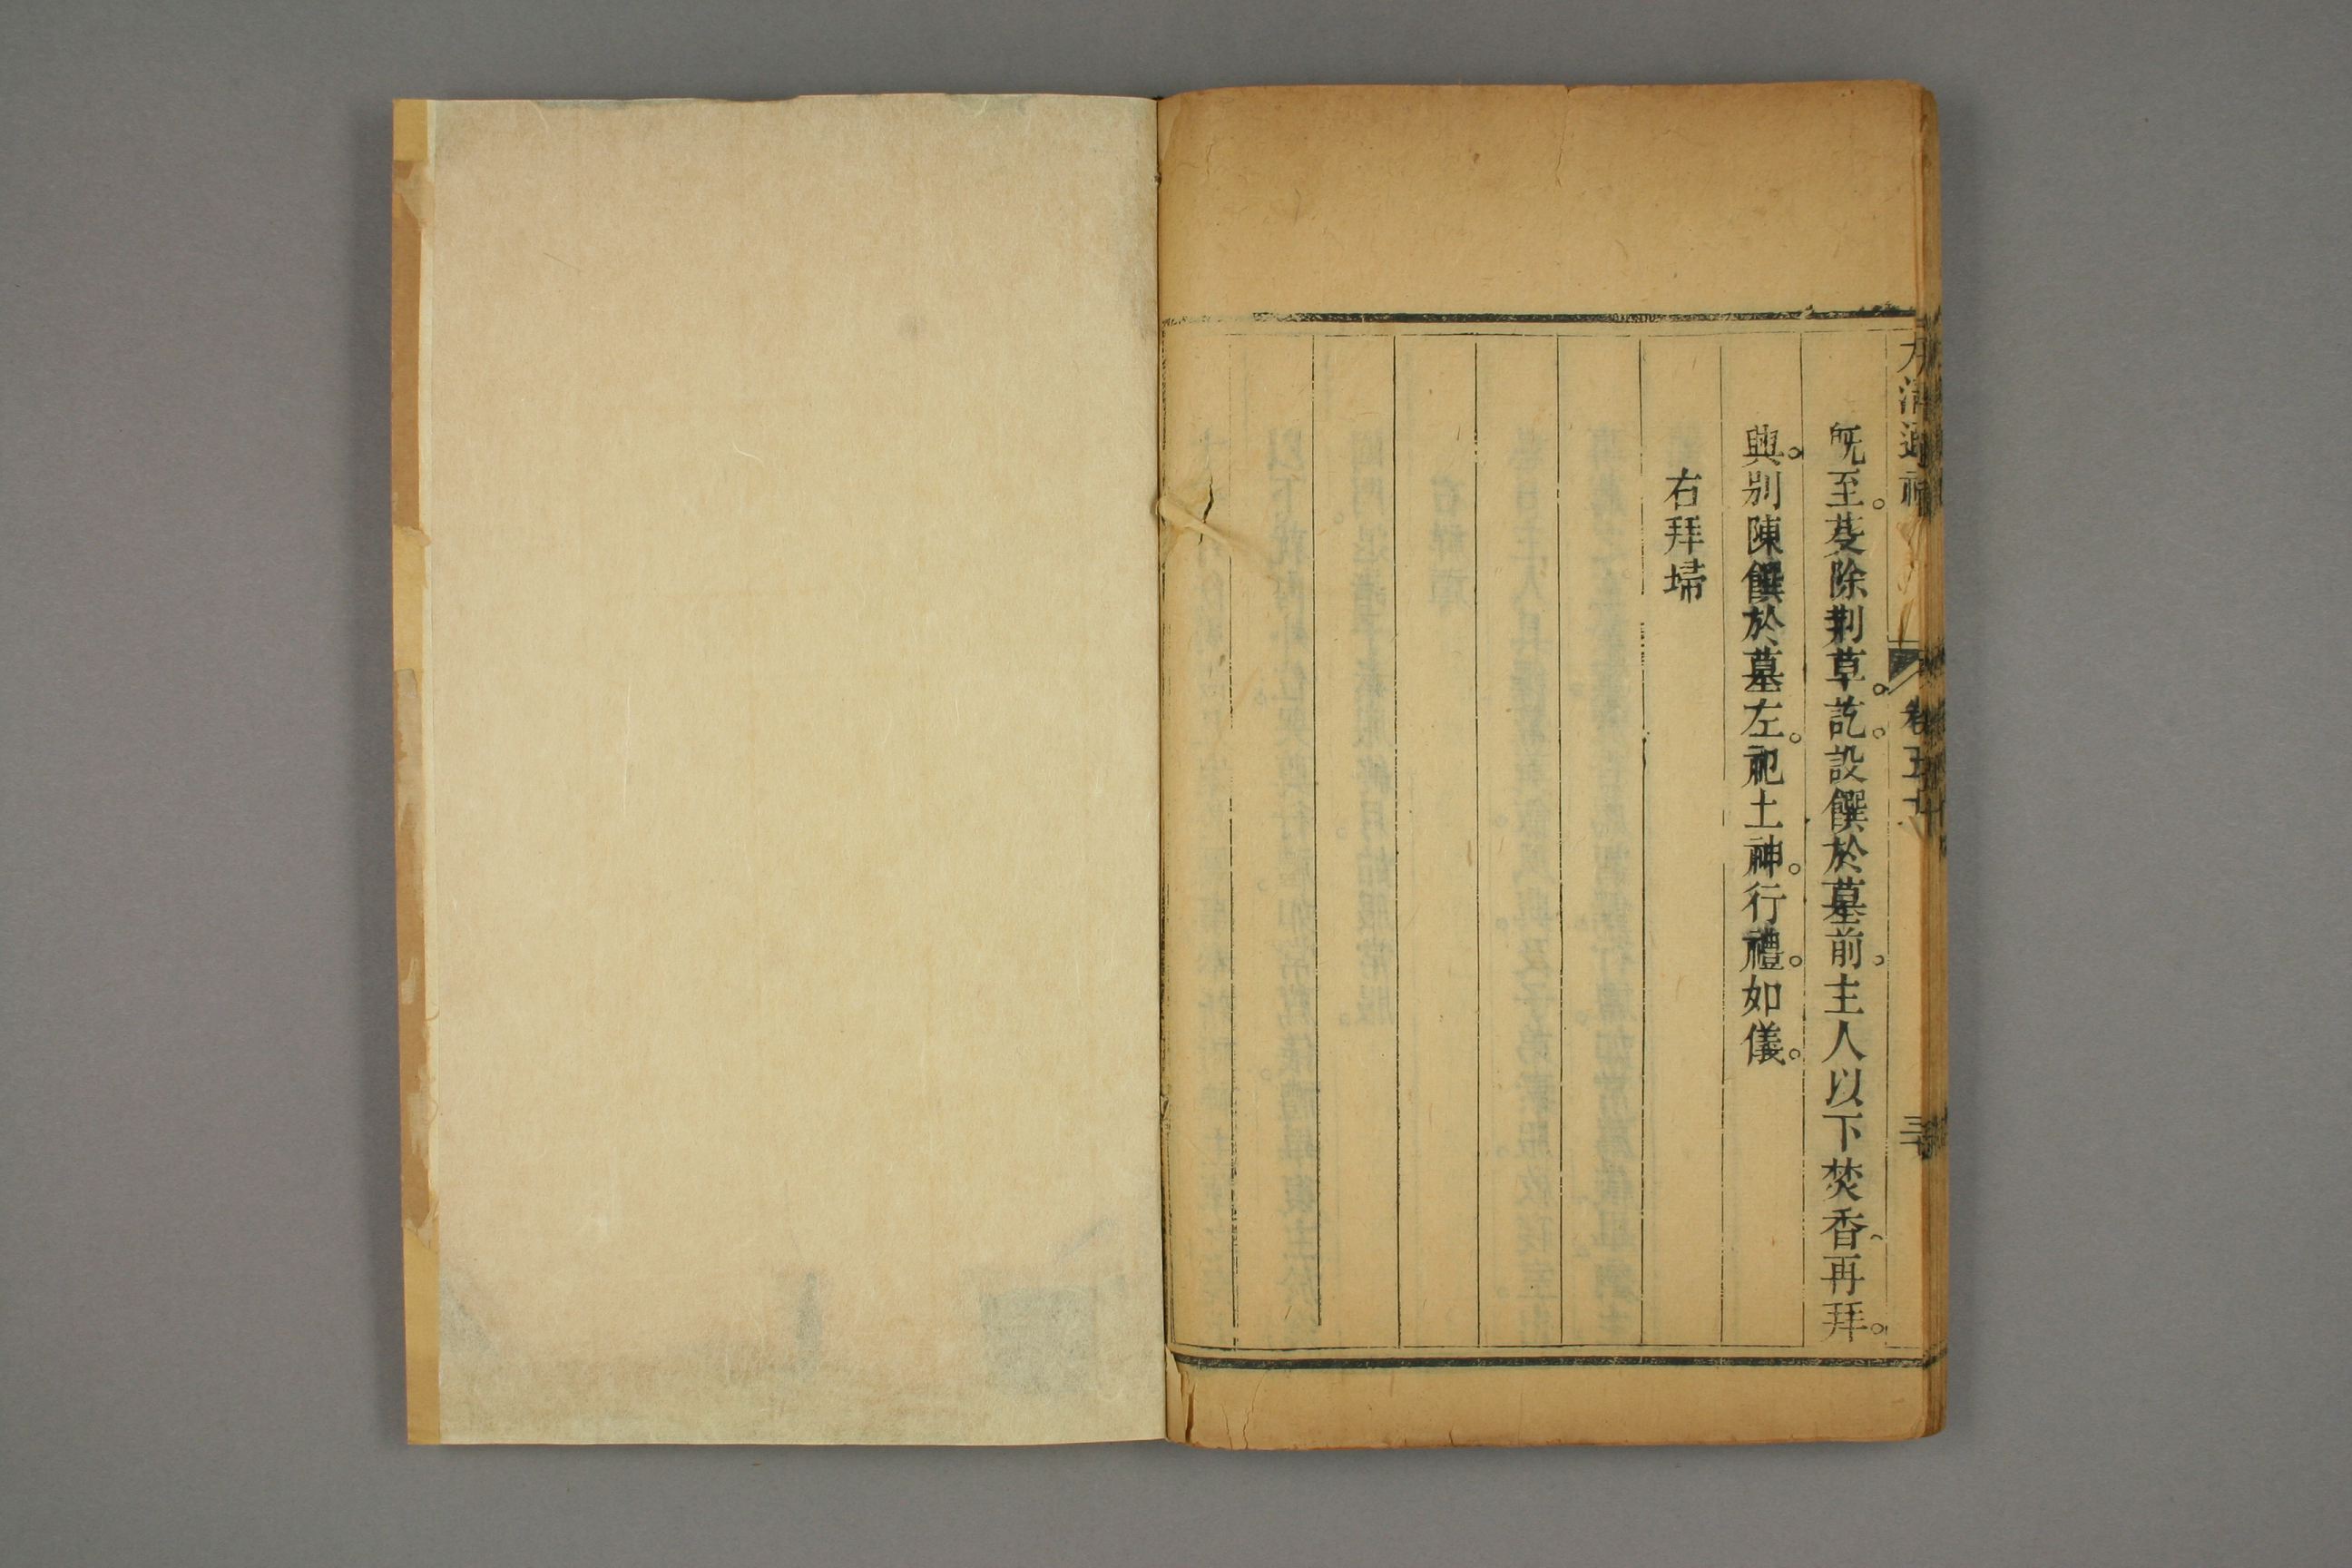 大清通禮 卷五十 三
旣至。芟除荆草。訖。設饌於墓前。主人以下焚香。再拜。
興。別陳饌於墓左。祀土神。行禮。如儀。
右拜埽